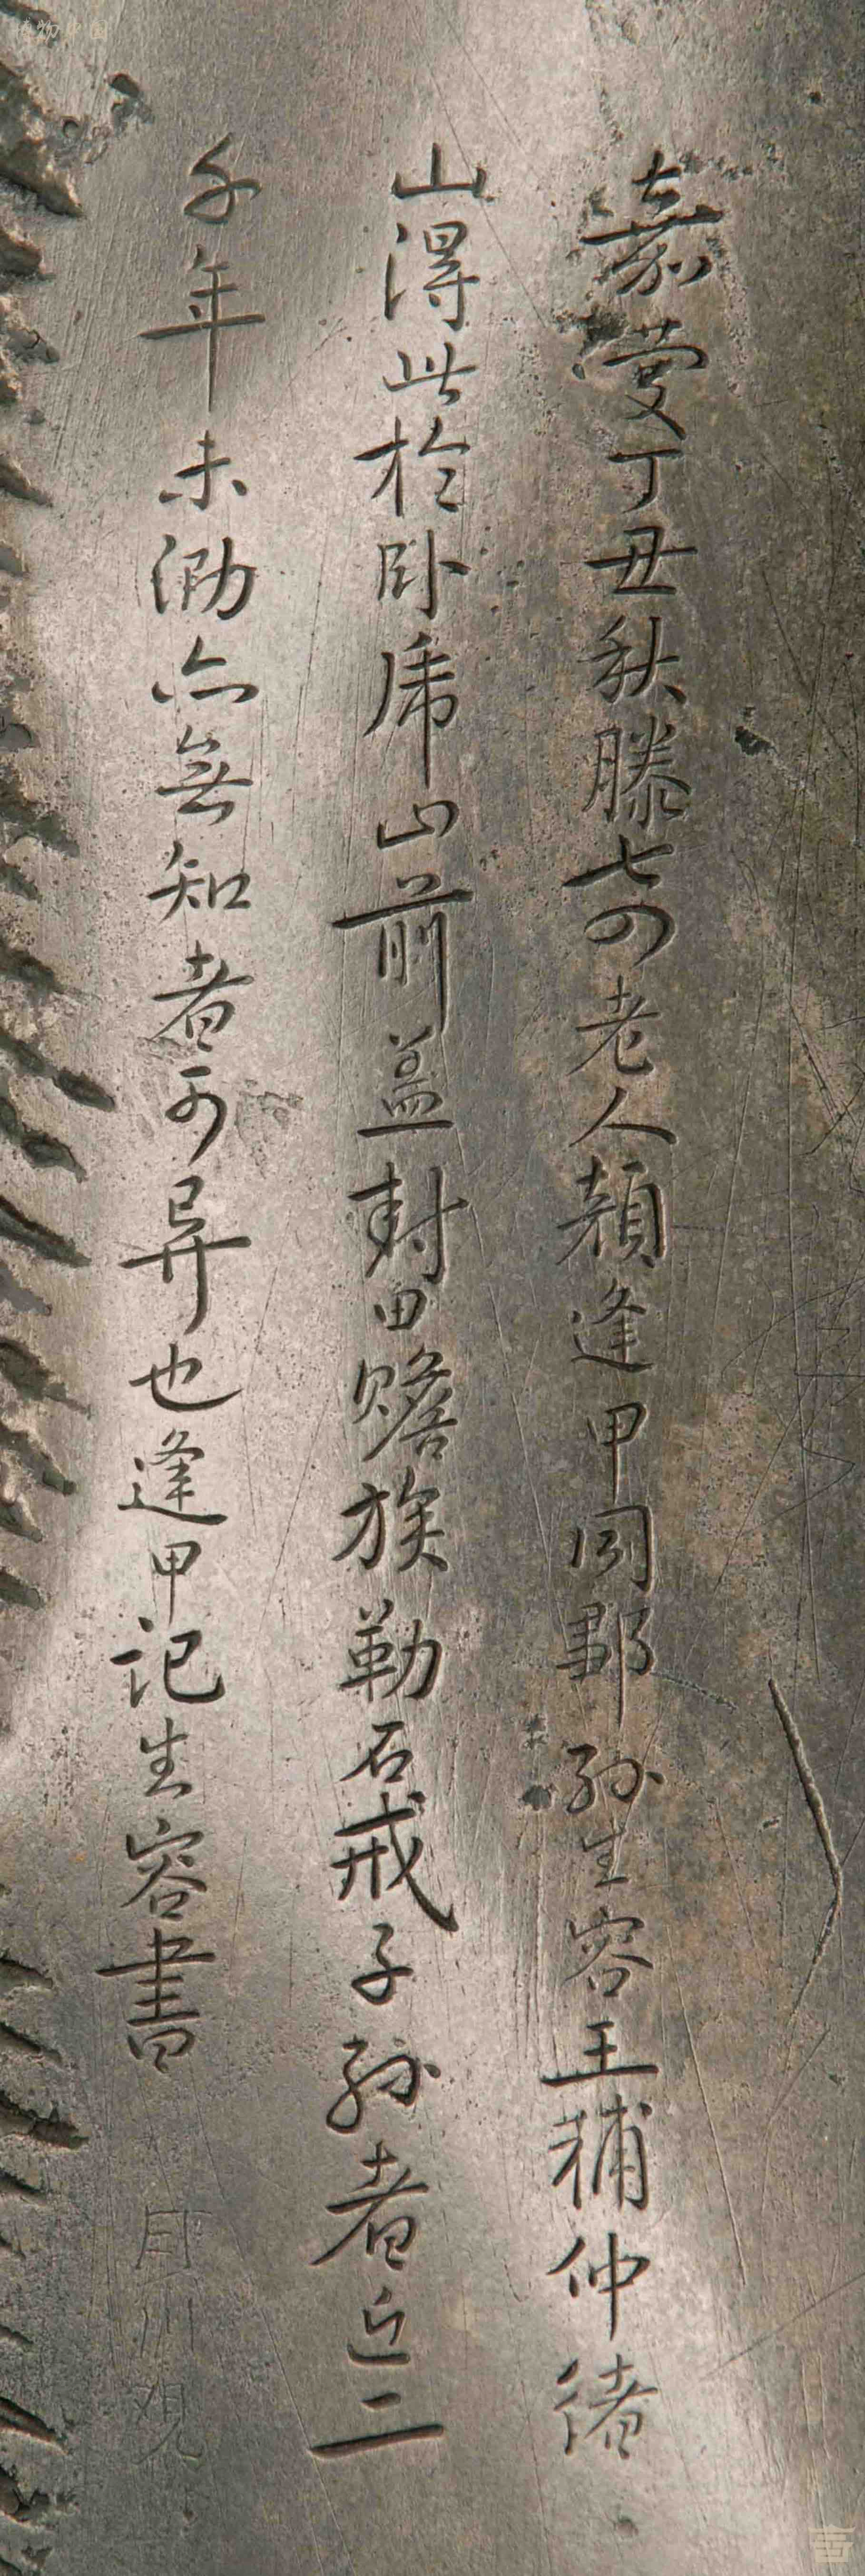 嘉慶丁丑秋滕七四老人顏逢甲同鄒孫生容王補仲緒
山得此於卧虎山前蓋封田贍族勒石戒子孫者近二
千年未泐亦無知者可異也逢甲記生容書
月川觀
博物中国